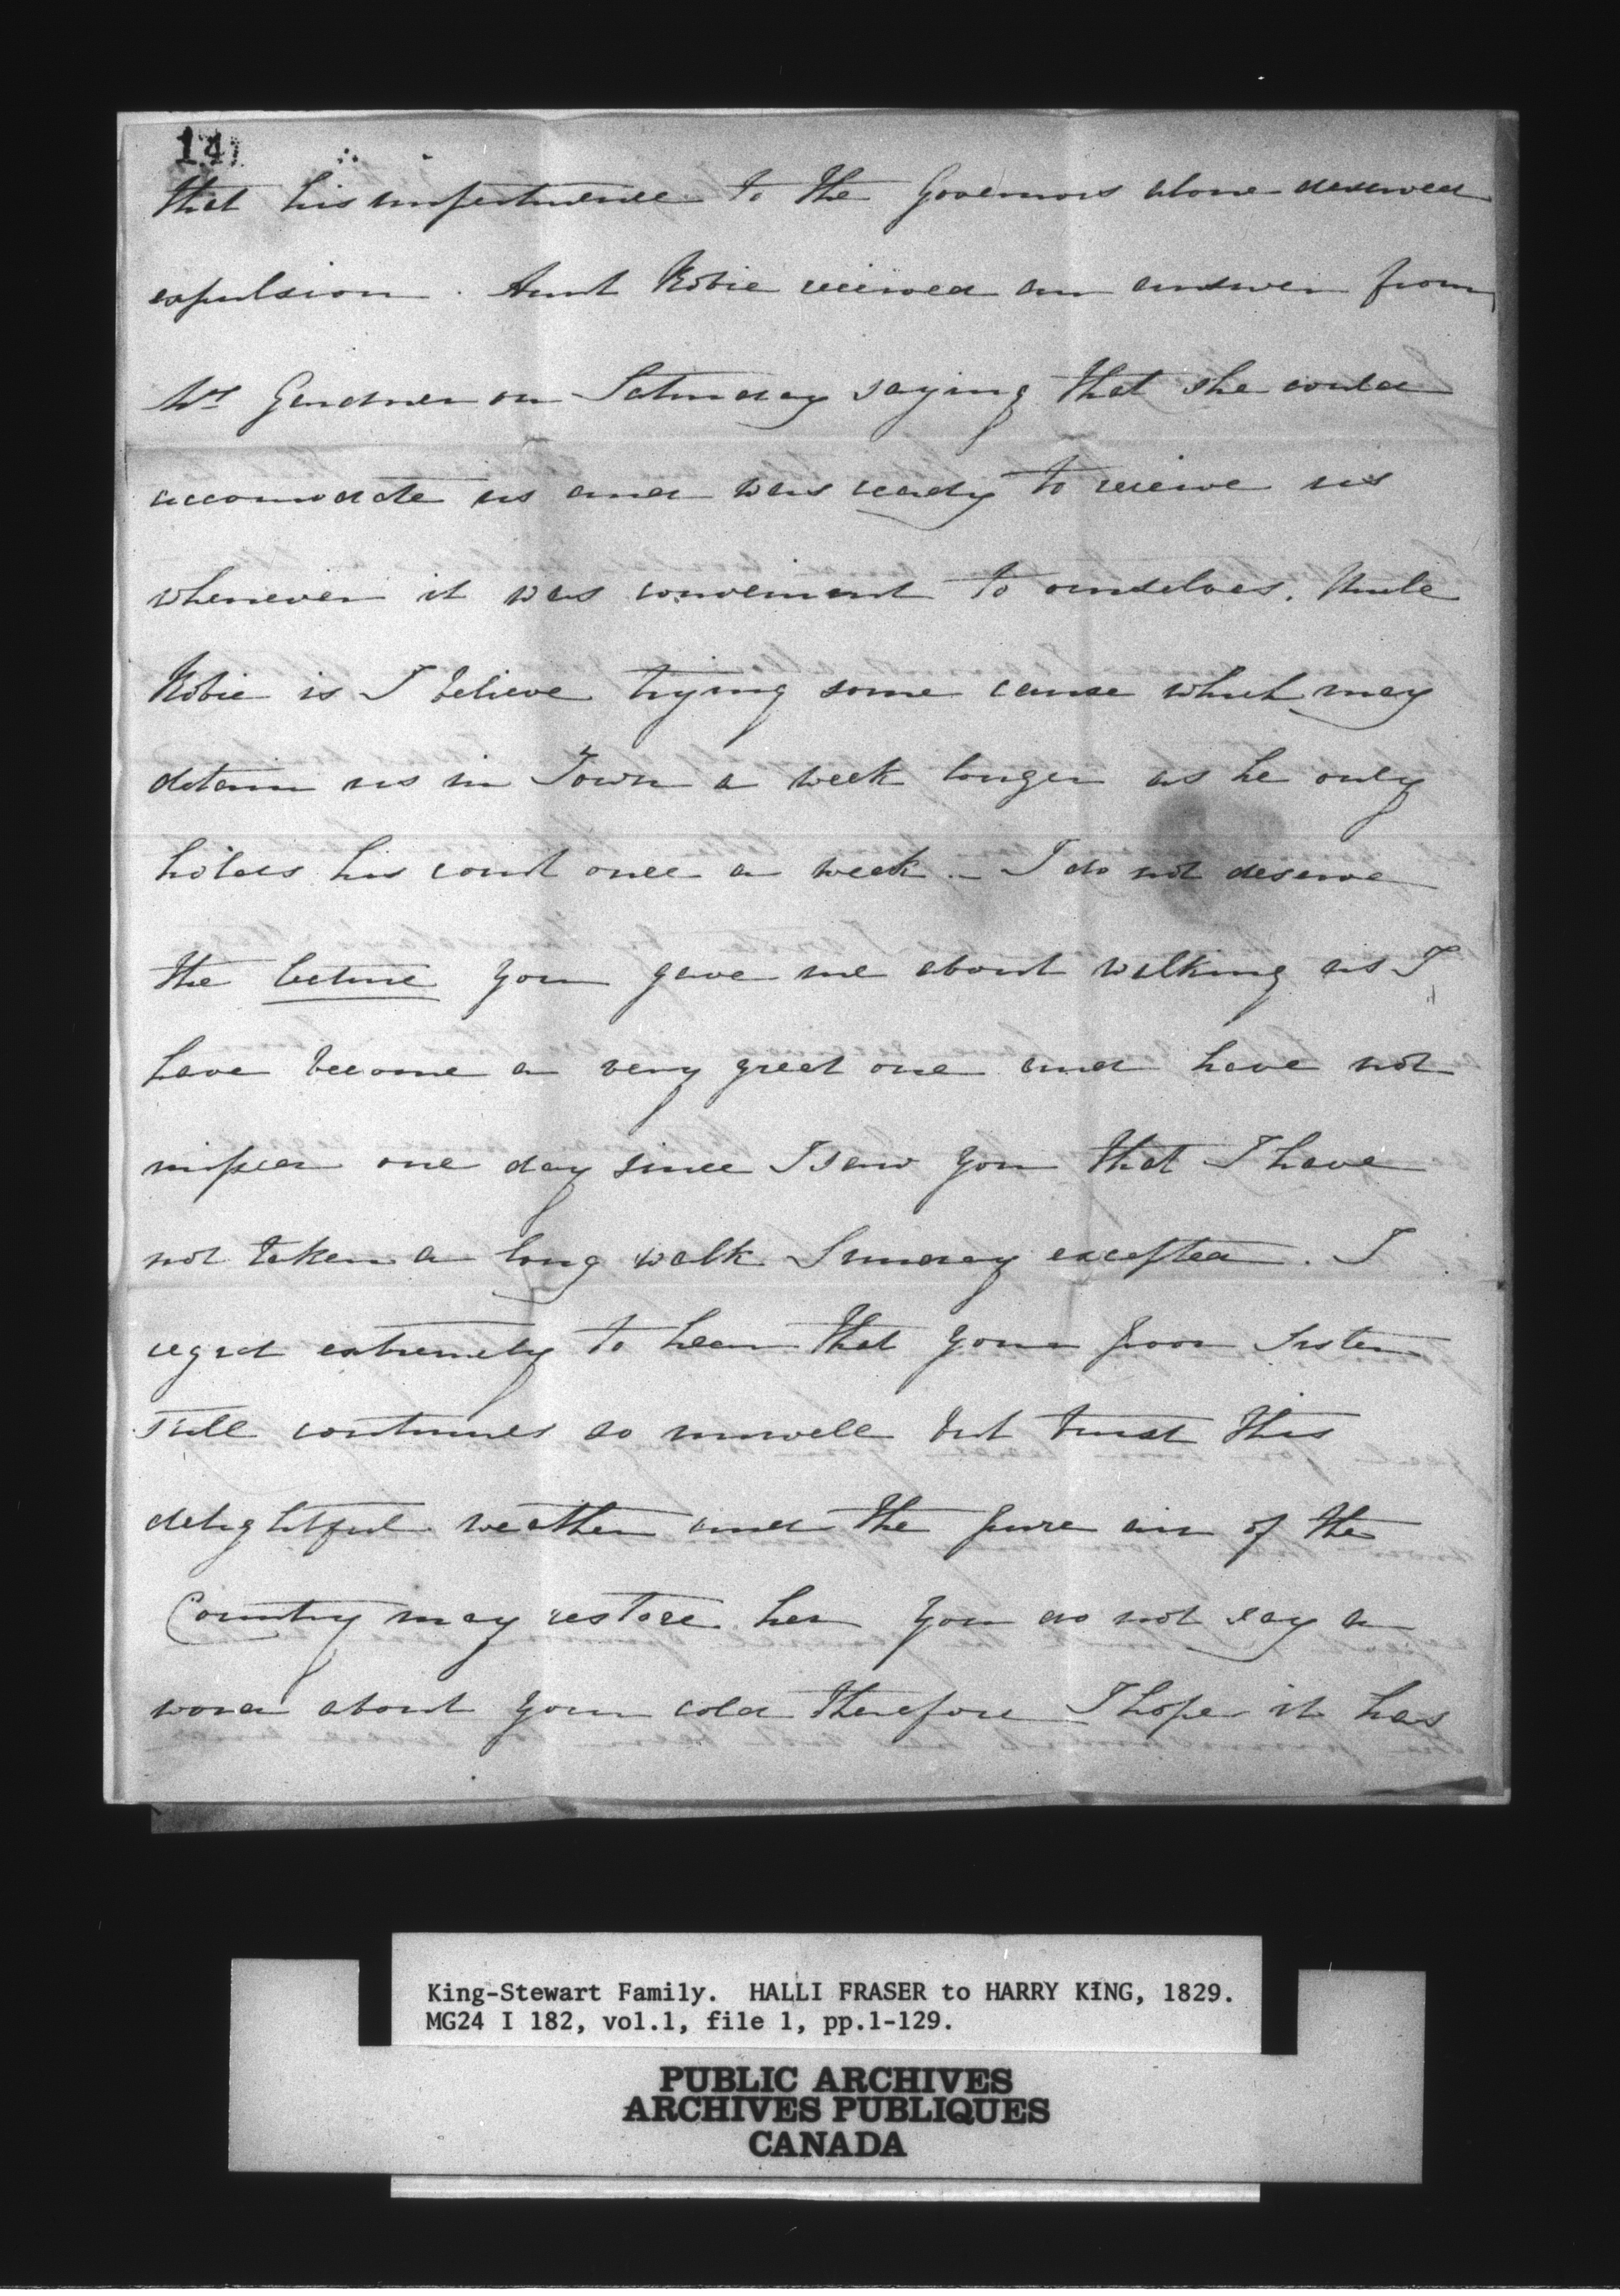 14
that his impertinence to the Governors alone deserved
expulsion. Aunt Robie received an answer from
Mrs Gardner on Saturday saying that she could
accomodate us and was ready to receive us
whenever it was convenient to ourselves. Uncle
Robie is I believe trying some cause which may
detain us in Town a week longer as he only
holds his court once a week. – I do not deserve
the lecture you gave me about walking as I
have become a very great one and have not
missed one day since I saw you that I have
not taken a long walk Sunday excepted. I
regret extremely to hear that your poor Sister
still continues so unwell but trust this
delightful weather and the pure air of the
Country may restore her you do not say a
word about your cold therefore I hope it has
King-Stewart Family. HALLI FRASER to HARRY KING, 1829.
MG24 I 182, vol.1, file 1, pp.1-129.
PUBLIC ARCHIVES
ARCHIVES PUBLIQUES
CANADA